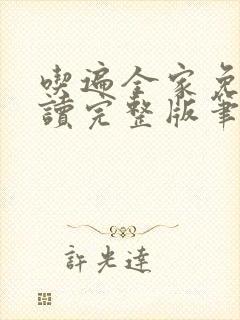 喫遍全家免
讀完整版筆
許光達